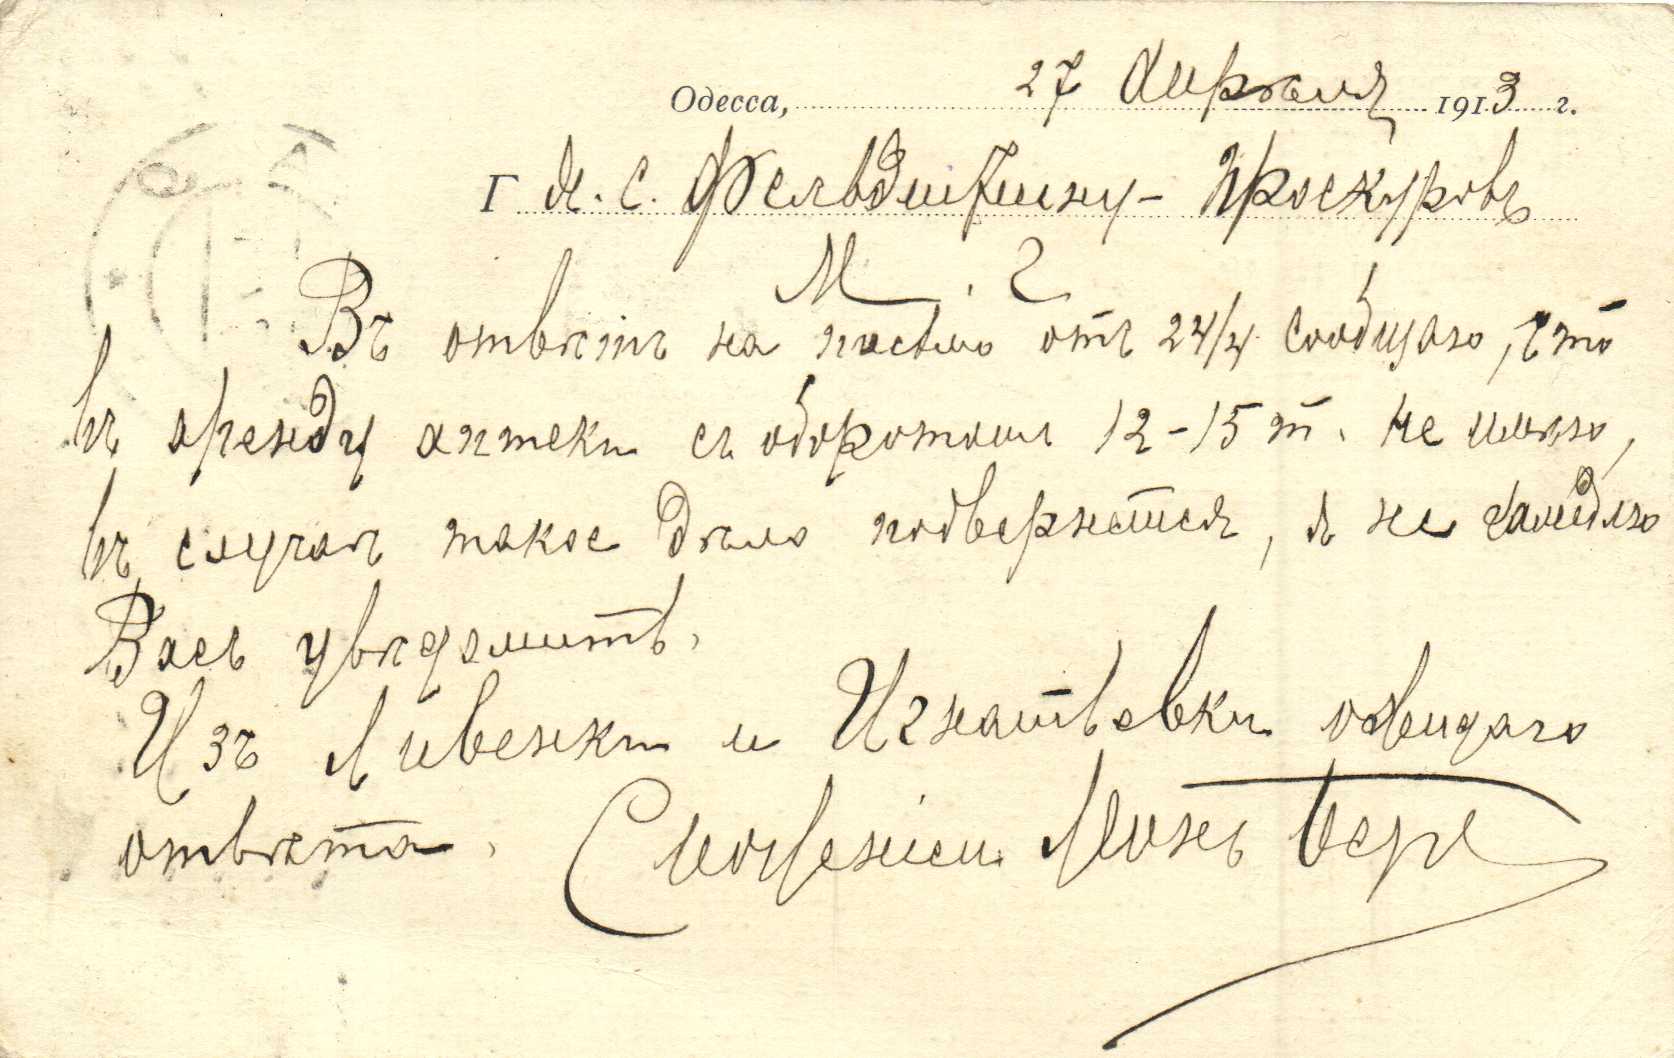 Одесса, 27 Апрѣля 1913 г.
Г Я. С. Фельдштину - Проскуровъ
М. Г.
Въ отвѣтъ на письмо отъ 24/4 сообщаю, что
въ аренду аптеки съ оборотомъ 12-15 т. не имѣю,
въ случаѣ такое дѣло подвернется, я не замедлю
Васъ увѣдомить.
Изъ Ливенки и Игнатьевки ожидаю
отвѣта.